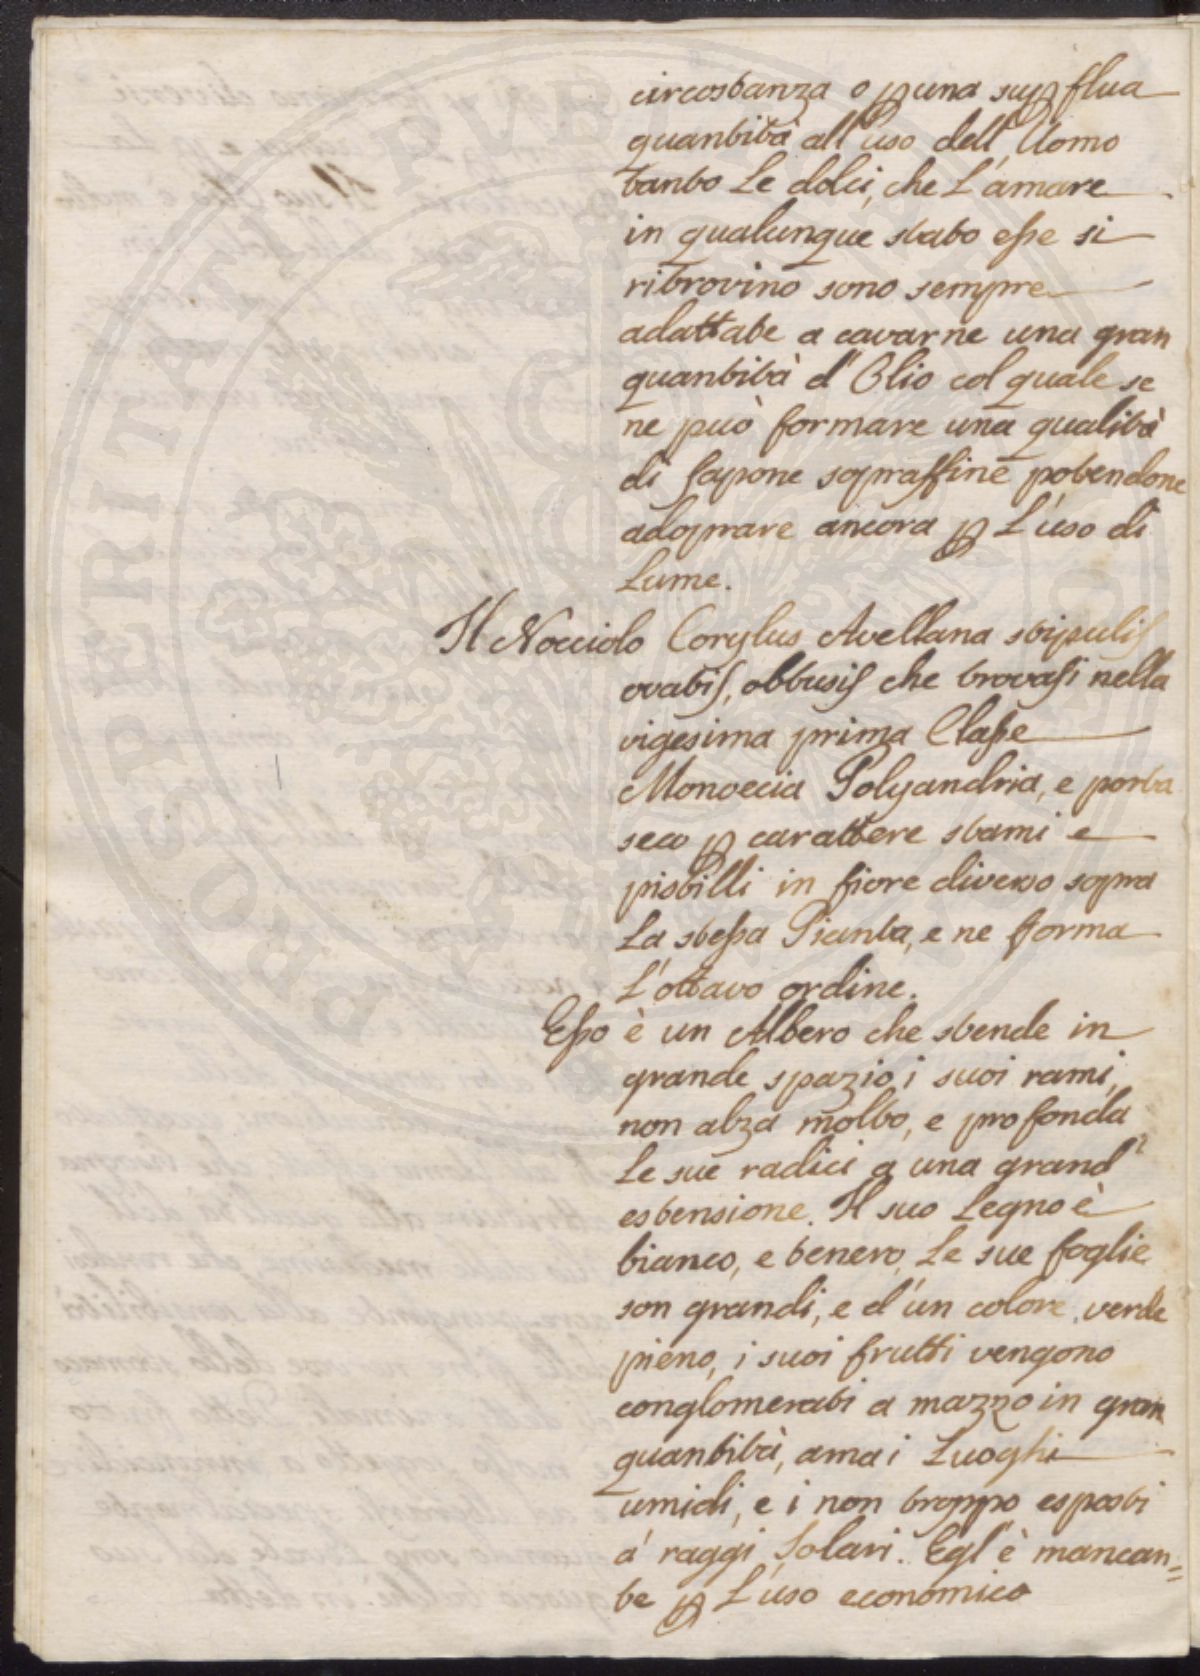 circostanza o ꝑ una suꝑflua
quantità all'uso dell'Uomo
tanto Le dolci, che L'amare
in qualunque stato eſse si
ritrovino sono sempre
adattate a cavarne una gran
quantità d'Olio col quale se
ne può formare una qualità
di ſapone sopraffine potendone
adoprare ancora ꝑ L'uso di
Lume.
Il Nocciolo Corylus Avellana stipuliſ
ovatiſ, obtusiſ che trovaſi nella
vigesima prima Claſse
Monoecia Polyandria, e porta
seco ꝑ carattere stami e
pistilli in fiore diverso sopra
La steſsa Pianta, e ne forma
L'ottavo ordine.
Eſso è un Albero che stende in
grande spazio i suoi rami,
non alza molto, e profonda
Le sue radici a una grand'
estensione. Il suo Legno è
bianco, e tenero, Le sue foglie
son grandi, e d'un colore verde
pieno, i suoi frutti vengono
conglomerati a mazzo in gran
quantità, ama i Luoghi
umidi, e i non troppo esposti
a' raggi Solari. Egl'è mancan=
te ꝑ L'uso economico
PROSPERITATI PVB